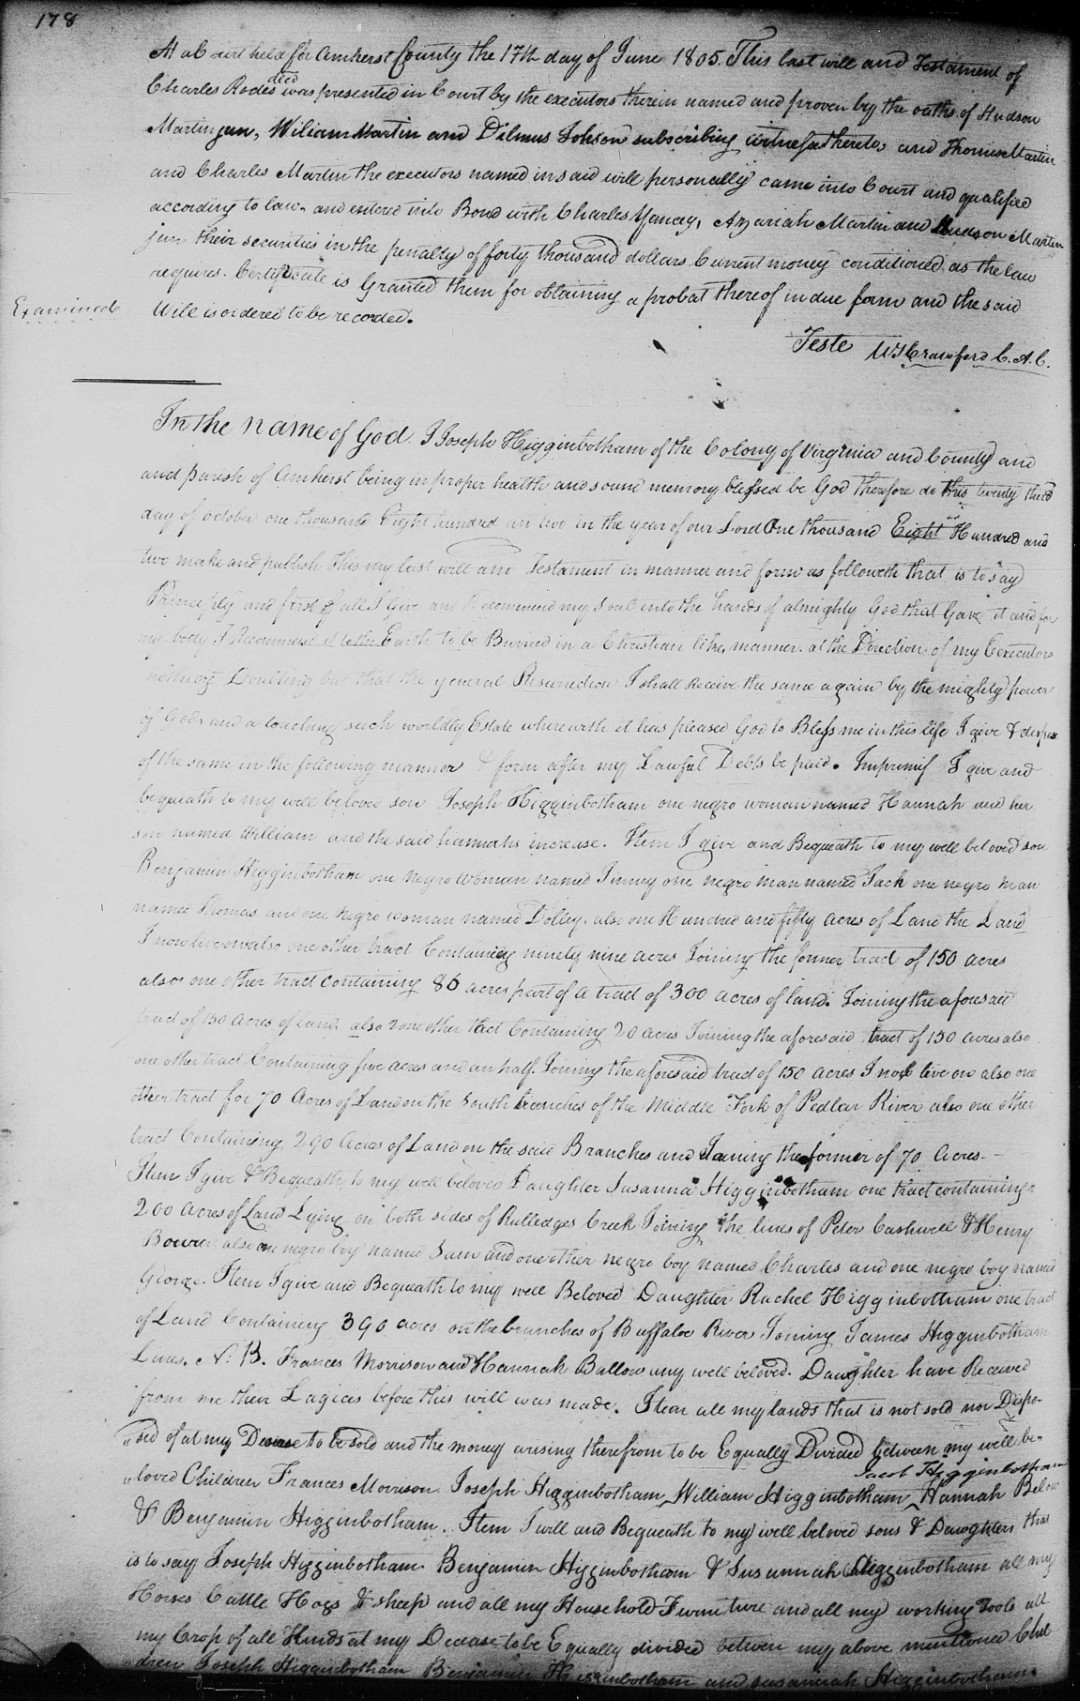 178
At a Court held for Amherst County the 17th day of June 1805. This last will and Testament of
Charles Rodes decd was presented in Court by the executors therein named and proven by the oaths of Hudson
Martin jun, William Martin and Dilmus Johson subscribing witnesses thereto, and Thomas Martin
and Charles Martin the executors named in said will personally came into Court and qualified
according to law, and entered into Bond with Charles Yancey, Azariah Martin and Hudson Martin
jun their securities in the penalty of forty thousand dollars Current money conditioned as the law
requires. Certificate is Granted them for obtaining a probat thereof in due form and the said
Examined
Will is ordered to be recorded.
Teste WS Crawford C. A. C.
In the name of God. I Joseph Higginbotham of the Colony of Virginia and County and
and parish of Amherst being in proper health and sound memory blessed be God therefore do this twenty third
day of october one thousand Eight hundred an two in the year of our Lord One thousand Eight Hundred and
two make and publish this my last will and Testament in manner and form as followeth that is to say
Principly and first of all I Give and Recommend my Soul into the hands of almighty God that Gave it and for
my body I Recommend it to the Earth to be Burried in a Christian like manner at the Direction of my Executors
nothing Doubting but that the general Resurrection I shall Receive the same again by the mighty power
of God, and a touching such worldly Estate wherewith it has pleased God to Bless me in this life I give & dispose
of the same in the following manner & form after my Lawful Debts be paid. Imprimis I give and
bequeath to my well beloved son Joseph Higginbotham one negro woman named Hannah and her
son named William and the said hannahs increase. Item I give and Bequeath to my well beloved son
Benjamin Higginbotham one Negro Woman named Jinney one negro man named Jack one negro man
named Thomas and one negro woman named Dolley. also one Hundred and fifty acres of Land the Land
I now live on also one other tract Containing ninety nine acres Joining the former tract of 150 acres
also one other tract containing 86 acres part of a tract of 300 acres of land. Joining the aforesaid
tract of 150 acres of land also one other tract Containing 20 acres Joining the aforesaid tract of 150 acres also
one other tract Containing five acres and an half. Joining the aforesaid tract of 150 acres I now live on also one
other tract for 70 Acres of Land on the South branches of the Middle Fork of Pedlar River also one other
tract Containing 290 Acres of Land on the said Branches and Joining the former of 70 Acres.-
Item I give & Bequeath to my well beloved Daughter Susanna Higginbotham one tract containing
200 Acres of Land Lying on both sides of Rutledges Creek Joining the lines of Peter Cashwell & Henry
Bourn also one negro boy named Sam and one other negro boy named Charles and one negro boy named
George. Item I give and Bequeath to my well Beloved Daughter Rachel Higginbotham one tract
of Land Containing 390 acres on the branches of Buffaloe River Joining James Higginbotham
Lines. N: B. Frances Morrison and Hannah Ballow my well beloved. Daughter have Received
from me their Lagices before this will was made. Item all my lands that is not sold nor Dispo-
"sed of at my Decease to be sold and the money arising therefrom to be Equally Divided between my well be-
Jacob Higginbotham
"loved Children Frances Morrison. Joseph Higginbotham, William Higginbotham, Hannah Below
& Benjamin Higginbotham. Item I will and Bequeath to my well beloved sons & Dawghters that
is to say Joseph Higginbotham Benjamin Higginbotham & Susannah Higginbotham all my
Horses Cattle Hogs & sheep and all my Household Furniture and all my working Tools all
my Crop of all Kinds at my Decease to be Equally divided between my above mentioned Chil
"dren Joseph Higginbotham Benjamin Higginbotham and susannah Higginbotham